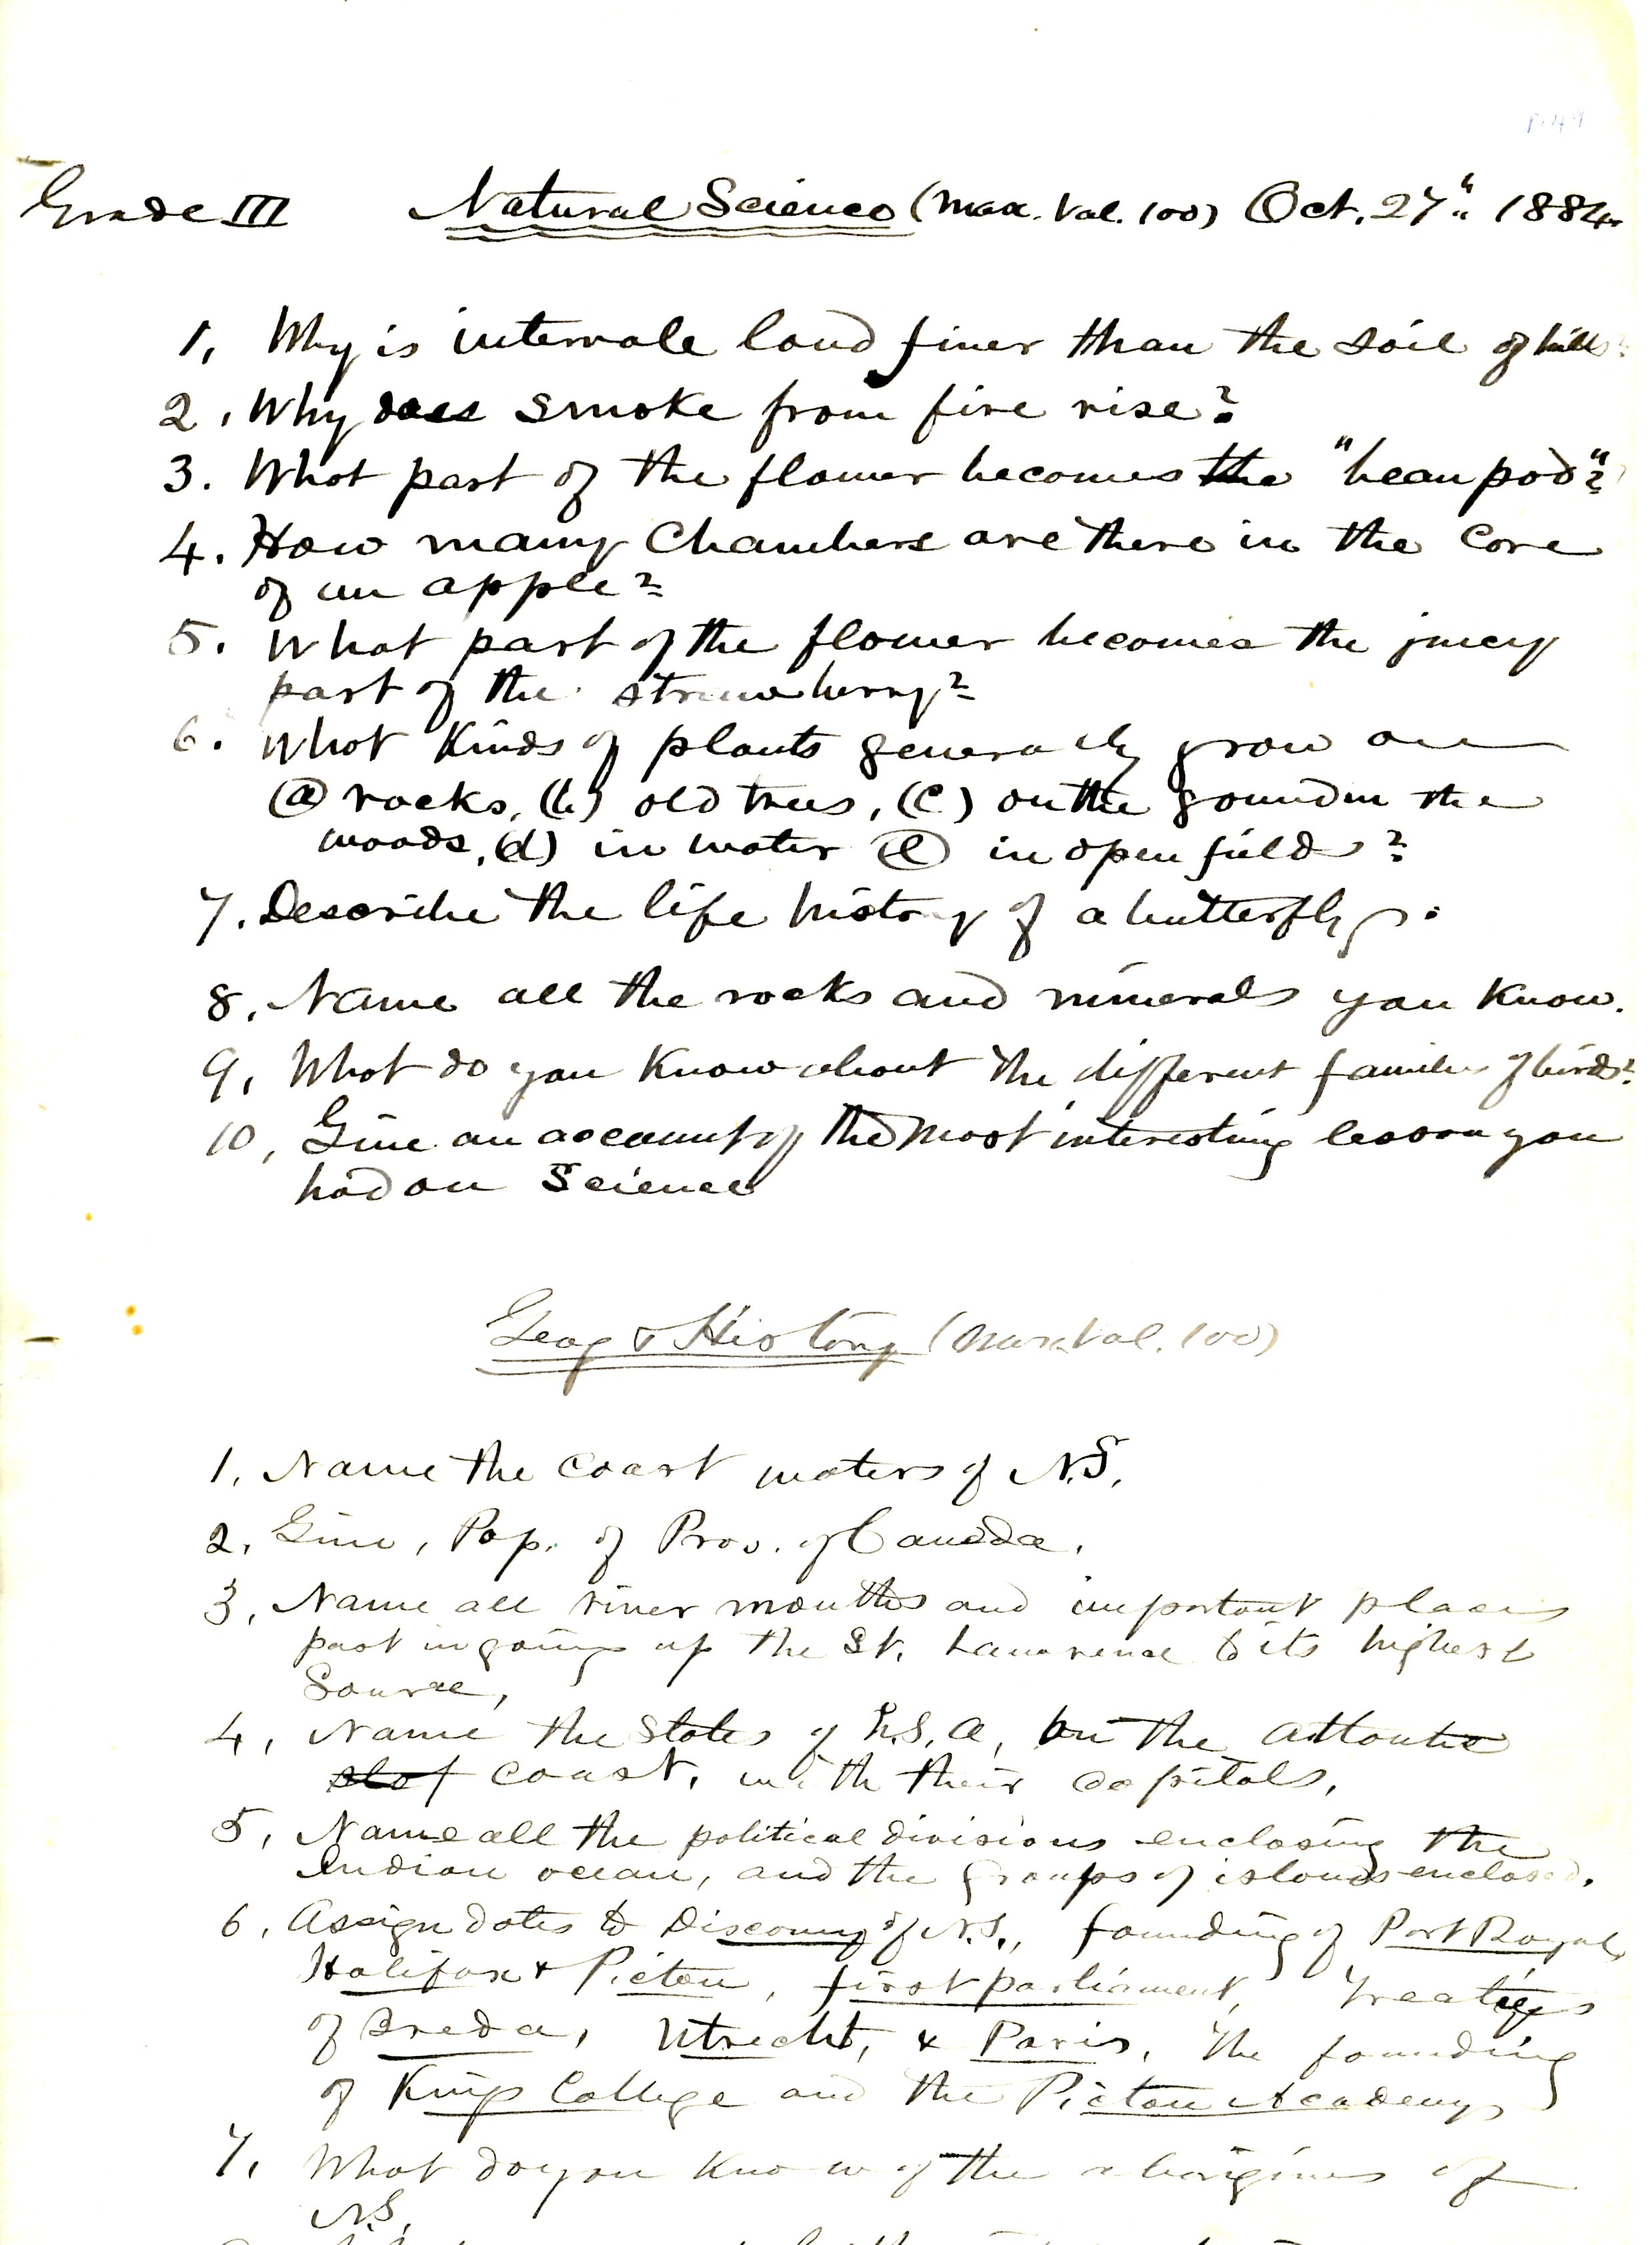 P.49
Grade III Natural Science (Max. Val. 100) Oct. 27" 1884
1, Why is intervale land finer than the soil of hills?
2, Why does smoke from fire rise?
3. What part of the flower becomes the "bean pod"?
4. How many Chambers are there in the core
of an apple?
5. What part of the flower becomes the juicy
part of the strawberry?
6. What Kinds of plants generally grow on
(a) rocks, (b) old trees, (c) on the ground in the
woods, (d) in water (e) in open fields?
7. Describe the life history of a butterfly.
8, Name all the rocks and minerals you Know.
9, What do you Know about the different families of birds?
10, Give an account of the most interesting lesson you
had on Science
Geog & History (Max. Val. 100)
1, Name the coast waters of N.S.
2, Give, Pop. of Prov. of Canada.
3, Name all river mouths and important places
past in going up the St. Lawrence to its highest
Source,
4, Name the States of U.S.A, on the Atlantic
slop coast, with their capitals,
5, Name all the political divisions enclosing the
Indian ocean, and the groups of islands enclosed.
6, Assign dates to Discovery of N.S., founding of Port Royal,
Halifax & Pictou, first parliament, Treaties
of Breda, Utrecht, & Paris, The founding
of Kings College and the Pictou Academy
7, What do you Know of the aborigines of
N.S.